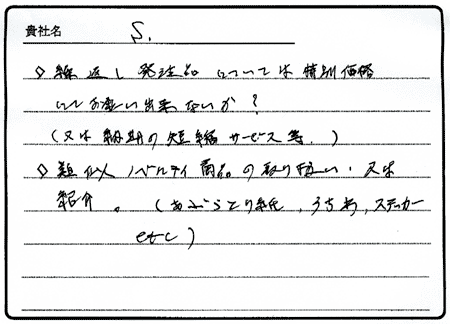 貴社名 S.
◇ 繰返し発注品については特別価格
にしお願い出来ないか?
(又は納期の短縮サービス等.)
◇ 類似ノベルティ商品の取り扱い、又は
紹介。(あぶらとり紙、うちわ、ステッカー
etc)